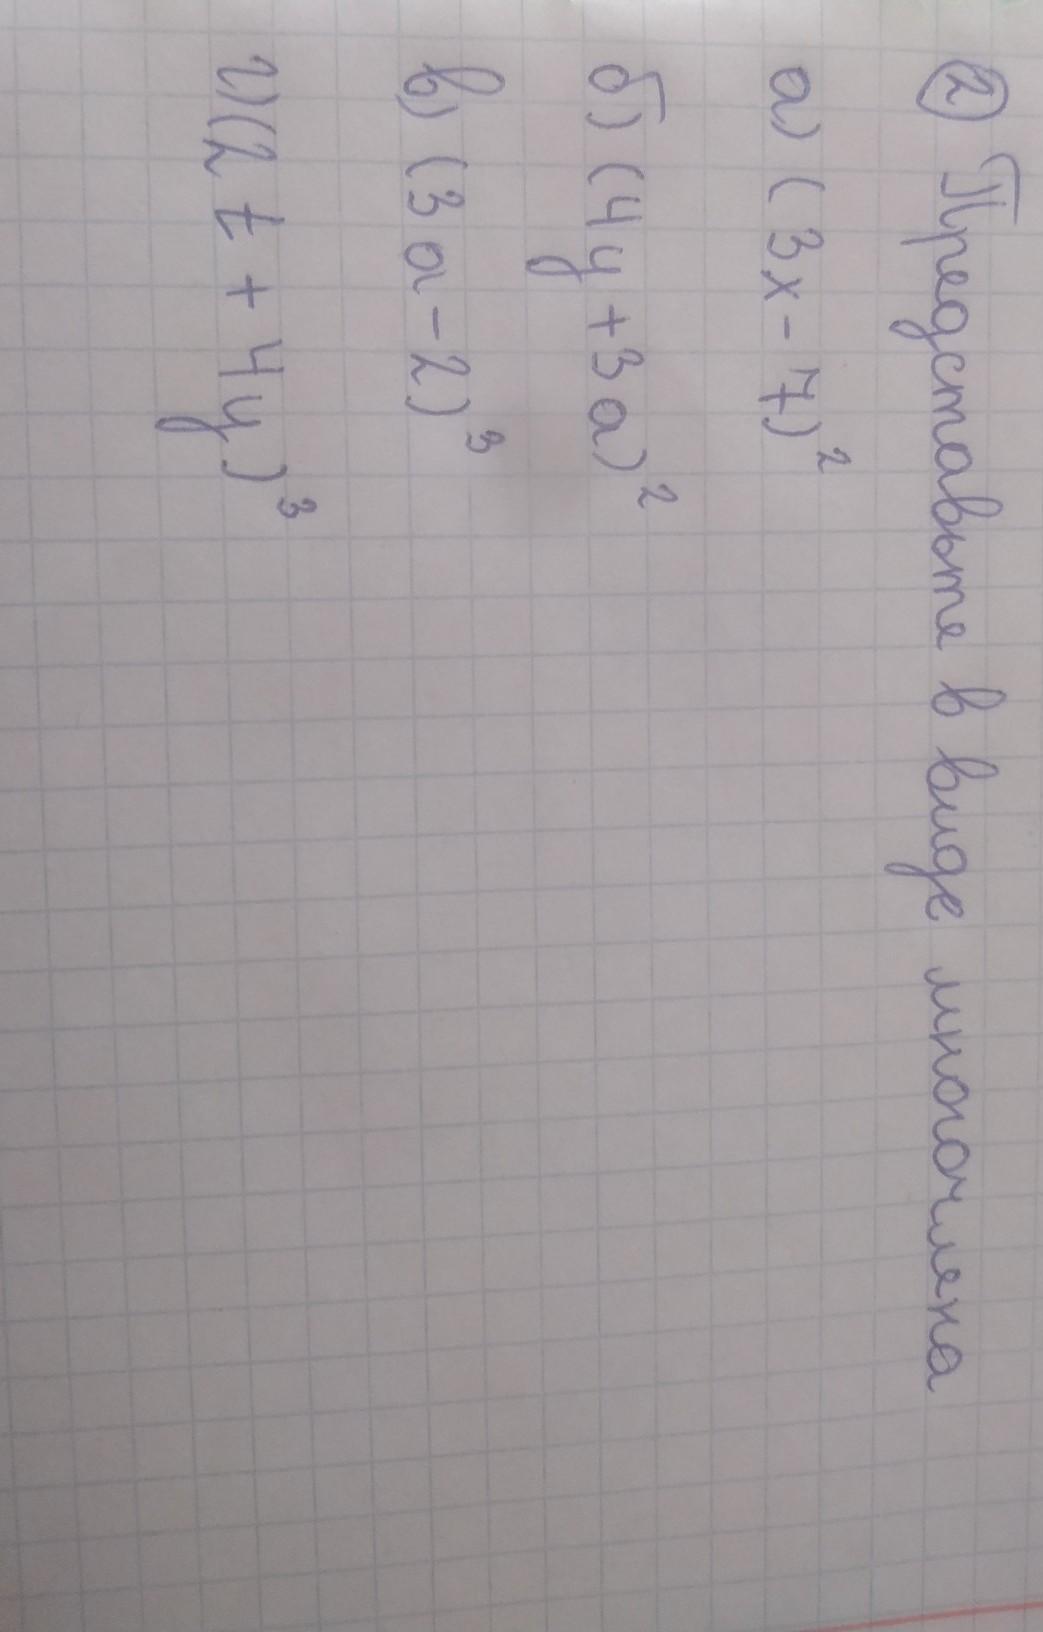 ② Представьте в виде многочлена
а) (3x-7)²
б) (4y+3a)²
в) (3a-2)³
г) (2t+4y)³